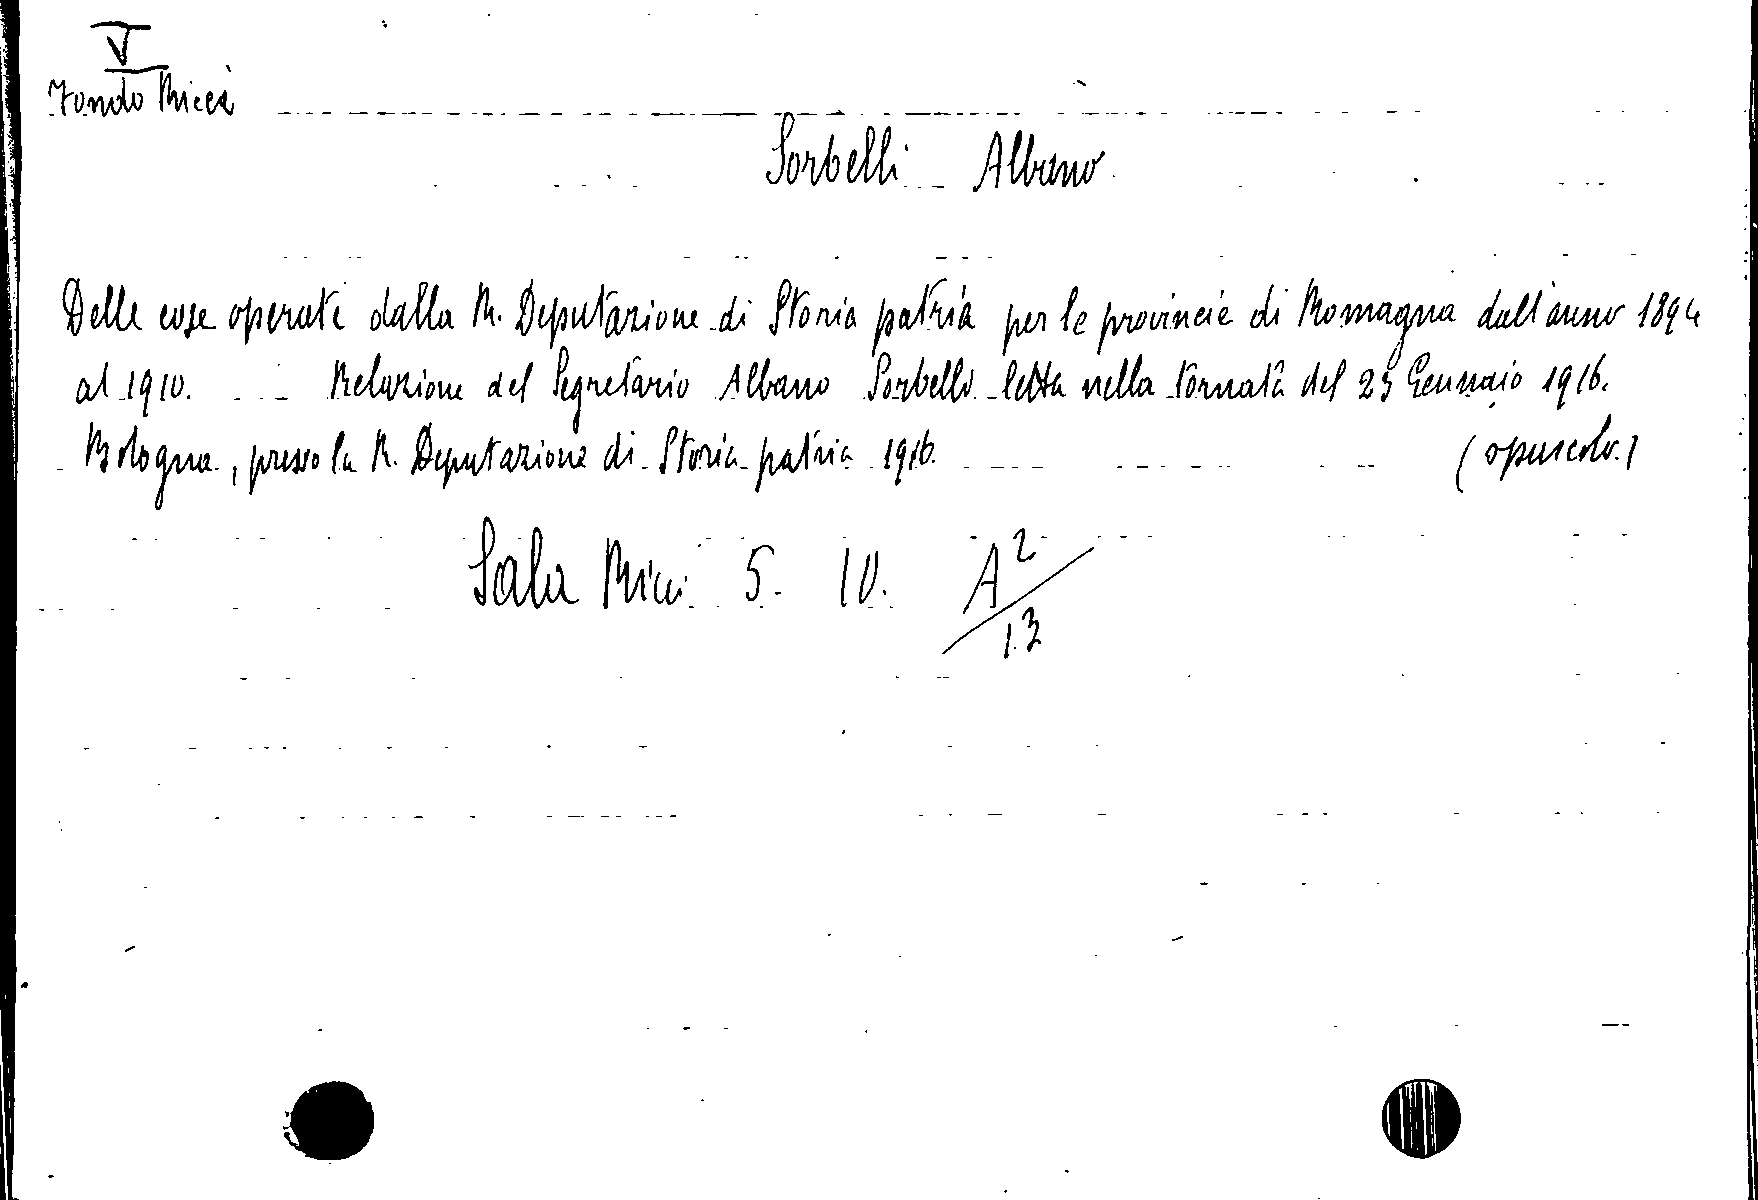 V
Fondo Ricci
Sorbelli Albano
Delle cose operate dalla R. Deputazione di Storia patria per le provincie di Romagna dall'anno 1894
al 1910. Relazione del Segretario Albano Sorbelli letta nella tornata del 23 Gennaio 1916.
Bologna, presso la R. Deputazione di Storia patria 1916. (opuscolo)
Sala Ricci 5. 10. A2/13